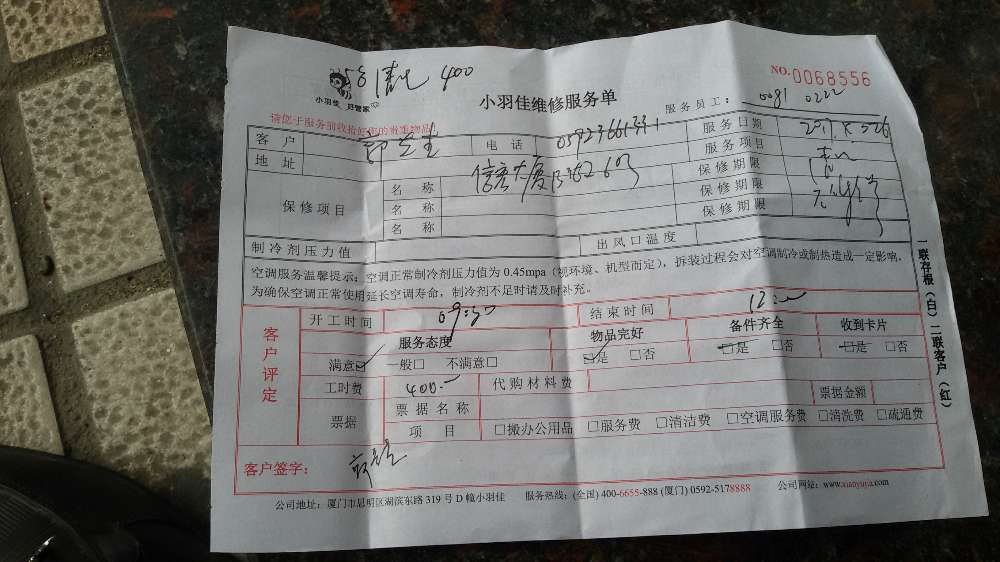 400
NO.0068556
小羽佳 好管家
小羽佳维修服务单
服务员工: 0081 0222
请您于服务前收拾好您的贵重物品
客户 电话 服务日期
地址 信宏大厦 服务项目
保修项目 名称 保修期限
名称 保修期限
名称 保修期限
制冷剂压力值 出风口温度
空调服务温馨提示:空调正常制冷剂压力值为0.45mpa(视环境、机型而定),拆装过程会对空调制冷或制热造成一定影响。
为确保空调正常使用延长空调寿命,制冷剂不足时请及时补充。
客户评定
开工时间 09:30 结束时间 12:00
服务态度 物品完好 备件齐全 收到卡片
满意☑ 一般□ 不满意□ ☑是 □否 ☑是 □否 ☑是 □否
工时费 400.— 代购材料费
票据 票据名称 票据金额
项目 □搬办公用品 □服务费 □清洁费 □空调服务费 □清洗费 □疏通费
客户签字:
公司地址:厦门市思明区湖滨东路319号D幢小羽佳 服务热线:(全国)400-6655-888 (厦门)0592-5178888 公司网址:www.xiaoyujia.com
一联存根(白)二联客户(红)